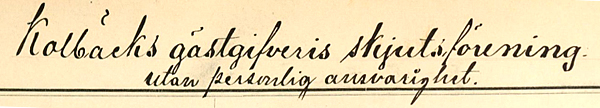 Kolbäcks gästgifveris skjutsförening.
utan personlig ansvarighet.